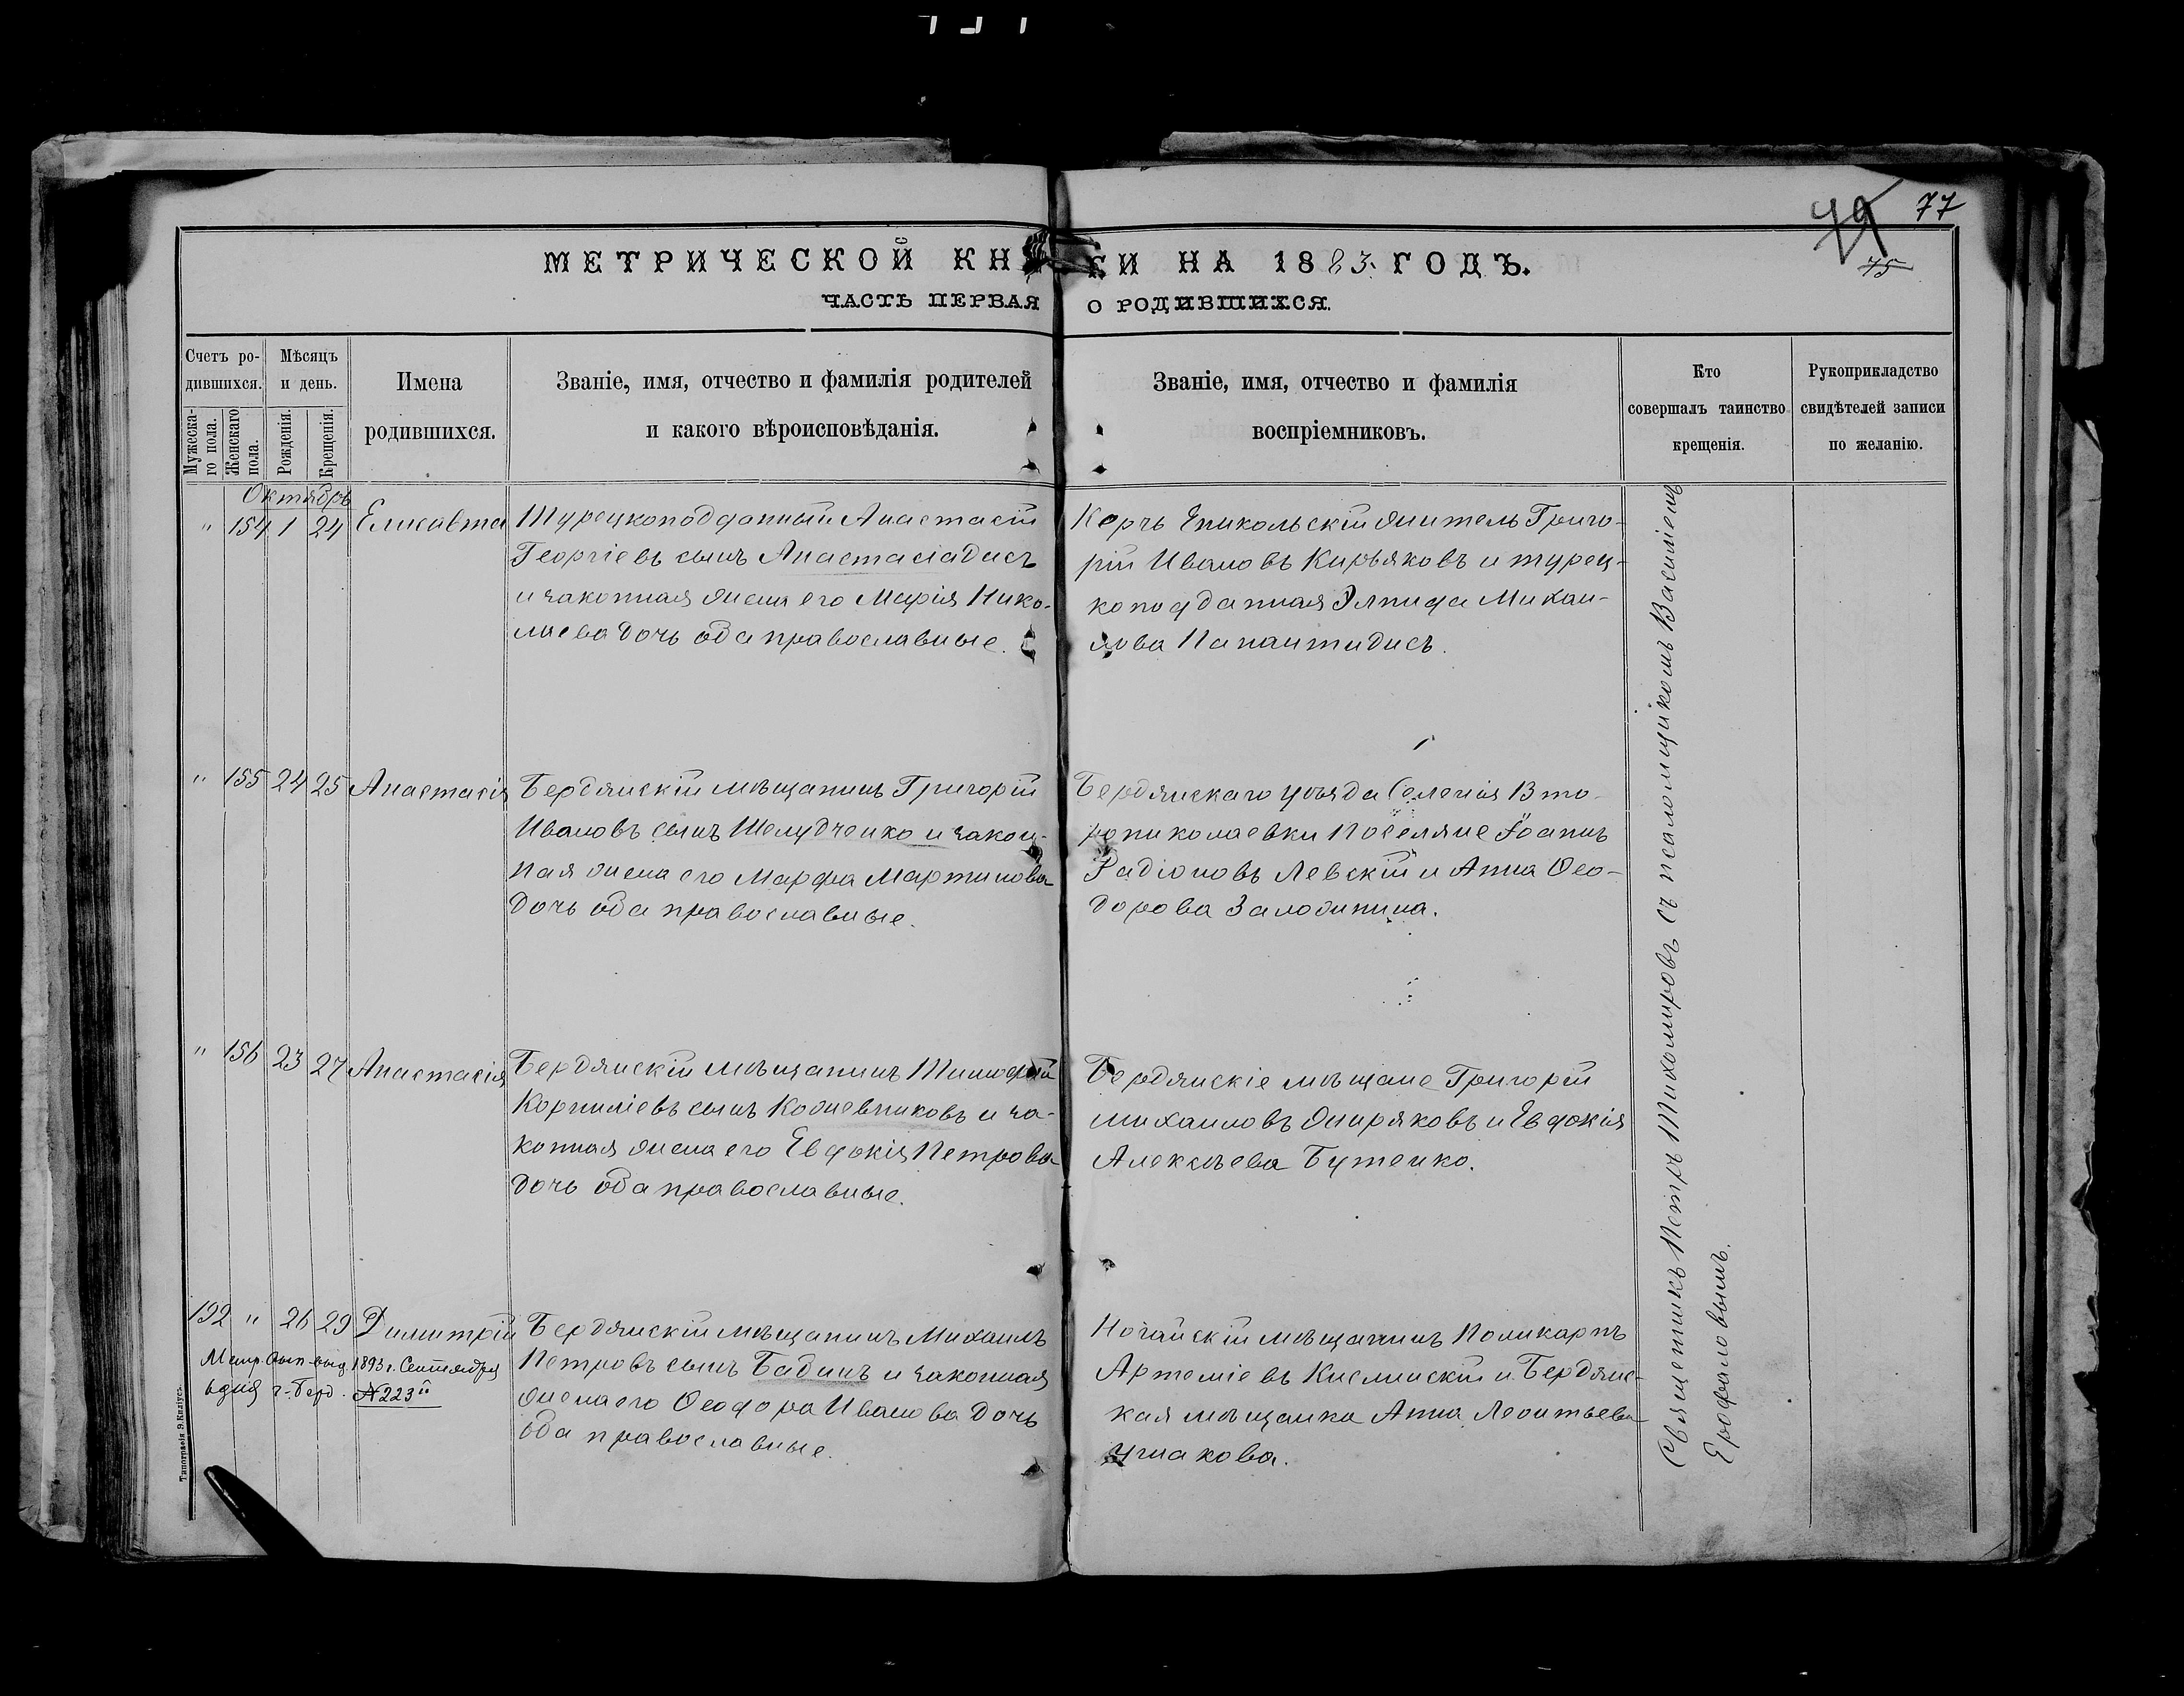 77
49
45
МЕТРИЧЕСКОЙ КНИГИ НА 1883 ГОДЪ.
ЧАСТЬ ПЕРВАЯ О РОДИВШИХСЯ.
Счетъ ро-
дившихся.
Мужеска-
го пола.
Женскаго
пола.
Мѣсяцъ
и день.
Рожденія.
Крещенія.
Имена
родившихся.
Званіе, имя, отчество и фамилія родителей
и какого вѣроисповѣданія.
Званіе, имя, отчество и фамилія
воспріемниковъ.
Кто
совершалъ таинство
крещенія.
Рукоприкладство
свидѣтелей записи
по желанію.
Октябрь
" 154 1 24 Елисавта
Турецкоподданный Анастасій
Георгіевъ сынъ Анастасіадисъ
и законная жена его Марія Нико-
лаева дочь оба православные.
Керчь Еникольскій житель Григо-
рій Ивановъ Кирьяковъ и турец-
коподданная Элпида Михаи-
лова Папантидисъ.
" 155 24 25 Анастасія
Бердянскій мѣщанинъ Григорій
Ивановъ сынъ Шелудченко и закон-
ная жена его Марфа Мартинова
дочь оба православные.
Бердянскаго уѣзда Селенія Вто-
рониколаевки поселяне Іоаннъ
Радіоновъ Левскій и Анна Ѳео-
дорова Заложинина.
" 156 23 27 Анастасія
Бердянскій мѣщанинъ Тимофей
Корниліевъ сынъ Кожевниковъ и за-
конная жена его Евдокія Петрова
дочь оба православные.
Бердянскіе мѣщане Григорій
Михаиловъ Жиряковъ и Евдокія
Алексѣева Бутенко.
192 " 26 29 Димитрій
Метр. вып. выд. 1893 г. Сентября
№ 223
Бердянскій мѣщанинъ Михаилъ
Петровъ сынъ Бадинъ и законная
жена его Ѳеодора Иванова дочь
оба православные.
Ногайскій мѣщанинъ Поликарпъ
Артеміевъ Кислинскій и Бердянс-
кая мѣщанка Анна Леонтьева
Ушакова.
Священникъ Петръ Тихомировъ съ псаломщикомъ Василіемъ
Ерофаловымъ.
Типографія Э. Килиуса.